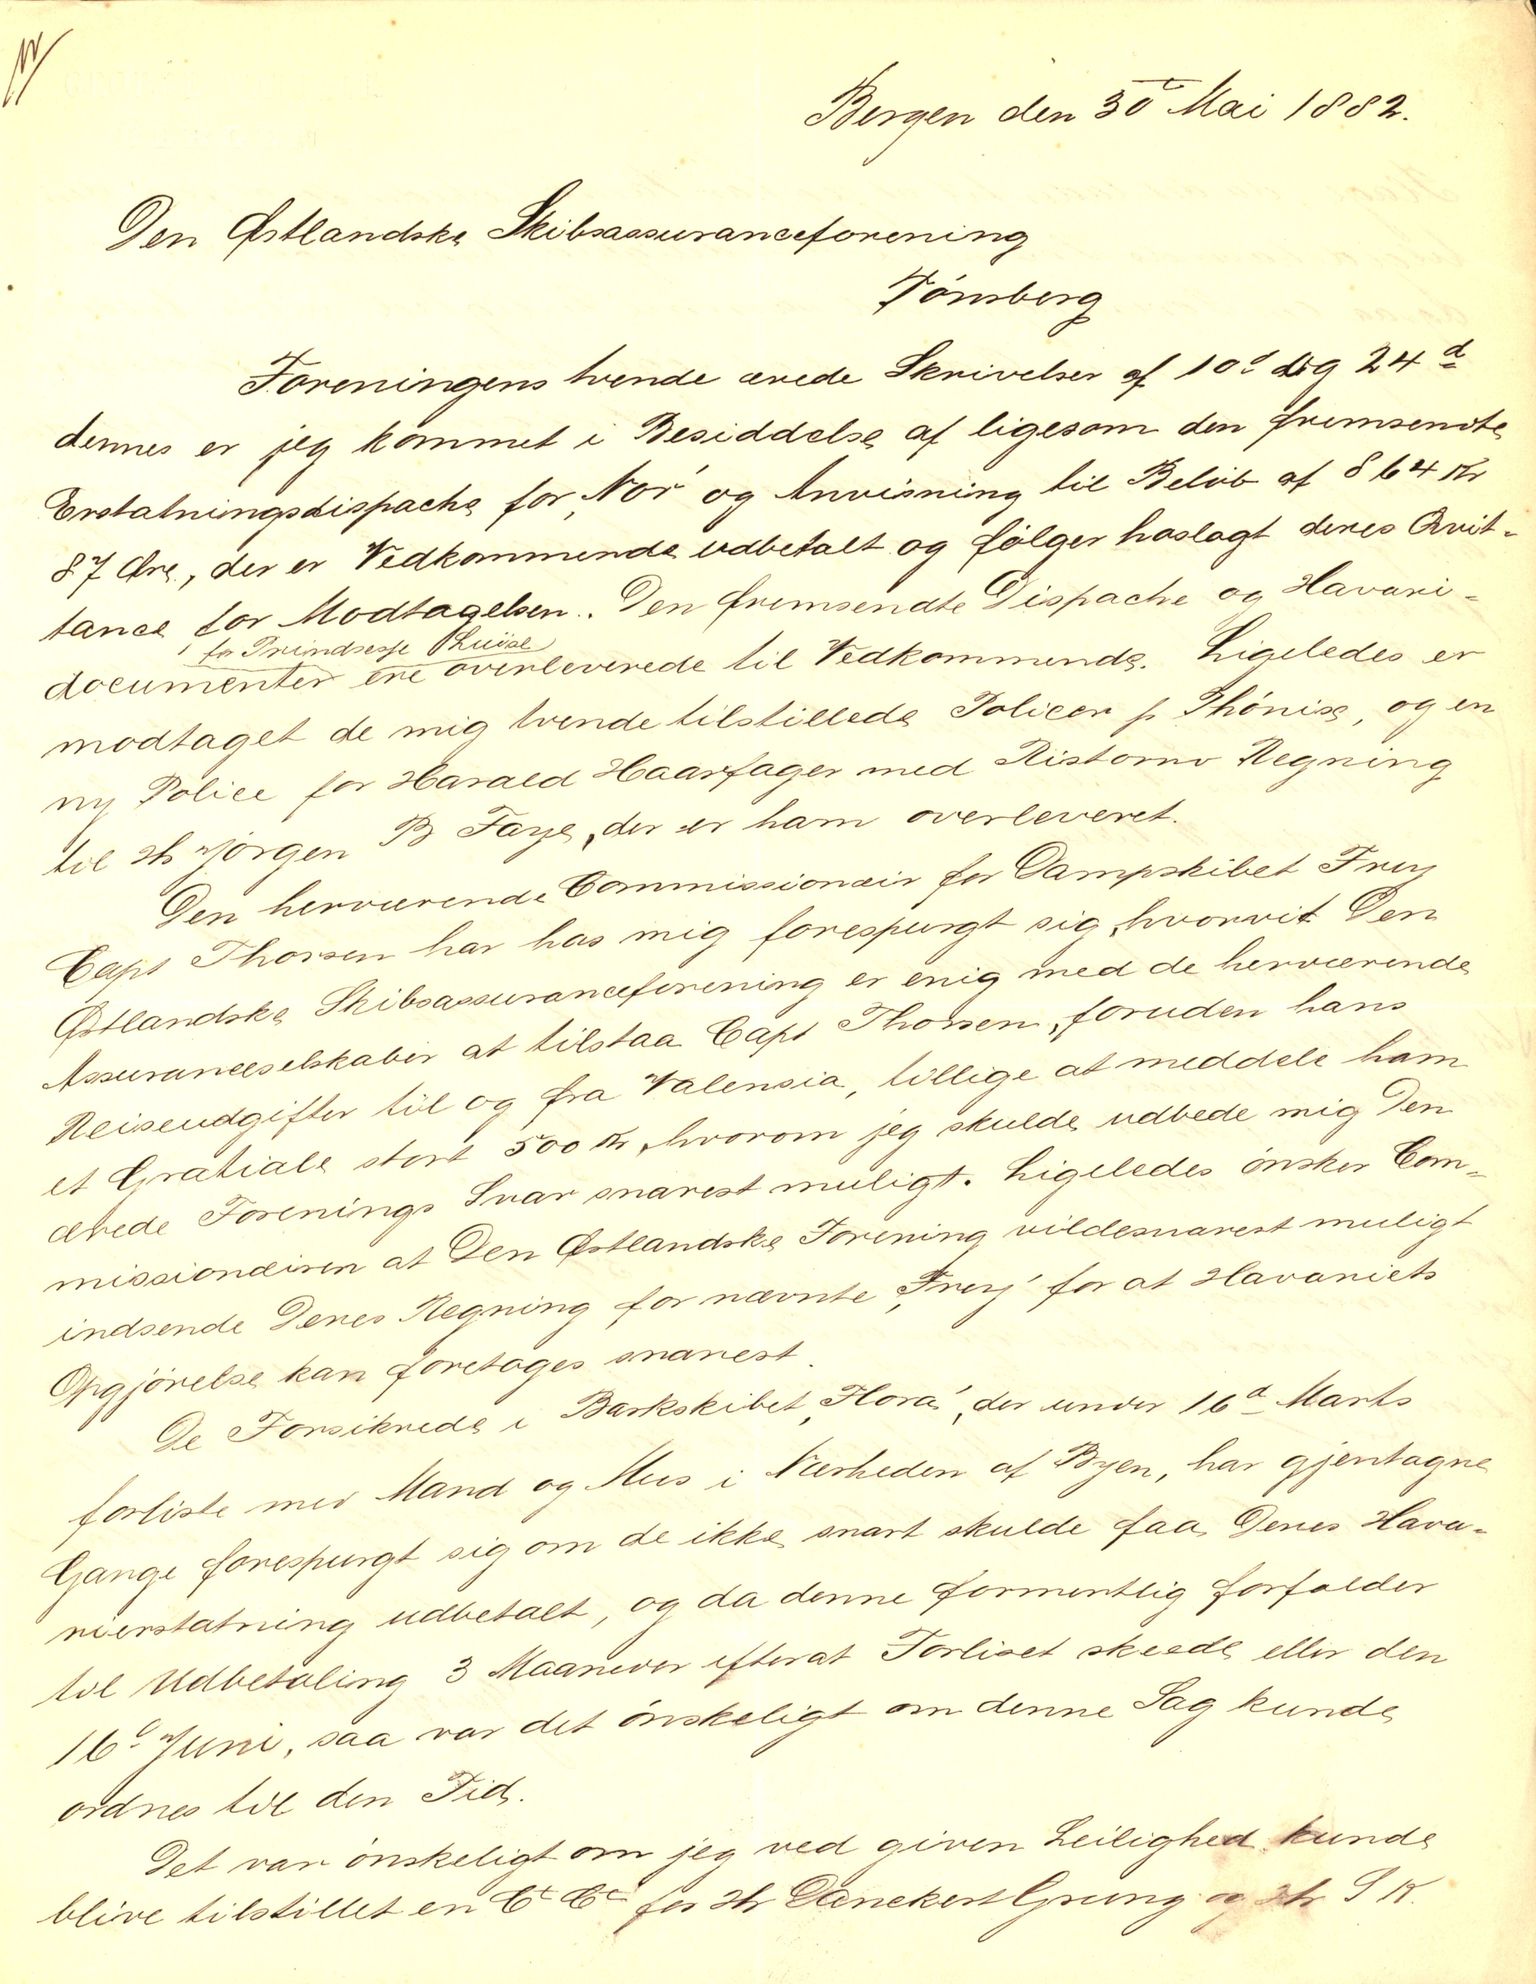 Bergen den 30t Mai 1882.
Den Østlandske Skibsassuranceforening
Tønsberg
Foreningens tvende ærede Skrivelser af 10d og 24d
dennes er jeg kommet i Besiddelse af ligesom den fremsendte
Erstatningsdispache for „Nor" og Anvisning til Beløb af 864 Kr
87 Øre, der er Vedkommende udbetalt og følger hoslagt deres Qvit-
tance for Modtagelsen. Den fremsendte Dispache og Havari-
for Prindsesse Luise
documenter ere overleverede til Vedkommende. Ligeledes er
modtaget de mig tvende tilstillede Policer p Phønix, og en
ny Police for Harald Haarfager med Ristorno Regning
til Hr Jørgen B Faye, der er ham overleveret.
Den herværende Commissionair for Dampskibet Frey
Capt Thorsen har hos mig forespurgt sig, hvorvit Den
Østlandske Skibsassuranceforening er enig med de herværende
Assuranceselskaber at tilstaa Capt Thorsen, foruden hans
Reiseudgifter til og fra Valensia, tillige at meddele ham
et Gratiale stort 500 Kr, hvorom jeg skulde udbede mig Den
ærede Forenings Svar snarest muligt. Ligeledes ønsker Com-
missionairen at Den Østlandske Forening vilde snarest muligt
indsende Deres Regning for nævnte „Frey" for at Havariets
Opgjørelse kan foretages snarest.
De Forsikrede i Barkskibet „Flora", der under 16d Marts
forliste med Mand og Mus i Nærheden af Byen, har gjentagne
Gange forespurgt sig om de ikke snart skulde faa Deres Hava-
rierstatning udbetalt, og da denne formentlig forfalder
til Udbetaling 3 Maaneder efterat Forliset skeede eller den
16d Juni, saa var det ønskeligt om denne Sag kunde
ordnes til den Tid.
Det var ønskeligt om jeg ved given Leilighed kunde
blive tilstillet en Ct Ct for Hr Danckert Grung og Hr S K.